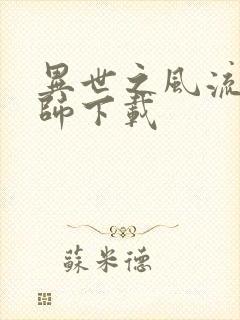 異世之風流
師下載
蘇米德